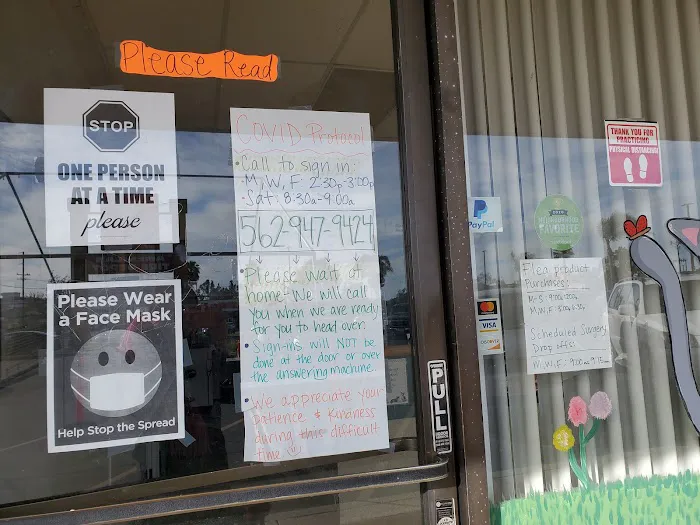 Please Read
STOP
ONE PERSON
AT A TIME
please
Please Wear
a Face Mask
Help Stop the Spread
COVID Protocol
• Call to sign in:
M, W, F 2:30p-3:00p
• Sat: 8:30a-9:00a
562-947-9424
• Please wait at
home. We will call
you when we are ready
for you to head over.
• Sign-ins will NOT be
done at the door or over
the answering machine.
• We appreciate your
patience & kindness
during this difficult
time
PULL
THANK YOU FOR
PRACTICING
PHYSICAL DISTANCING
PayPal
FAVORITE
VISA
DISCOVER
Flea product
Purchases:
M, W, F:
Scheduled Surgery
Drop offs:
M, W, F: